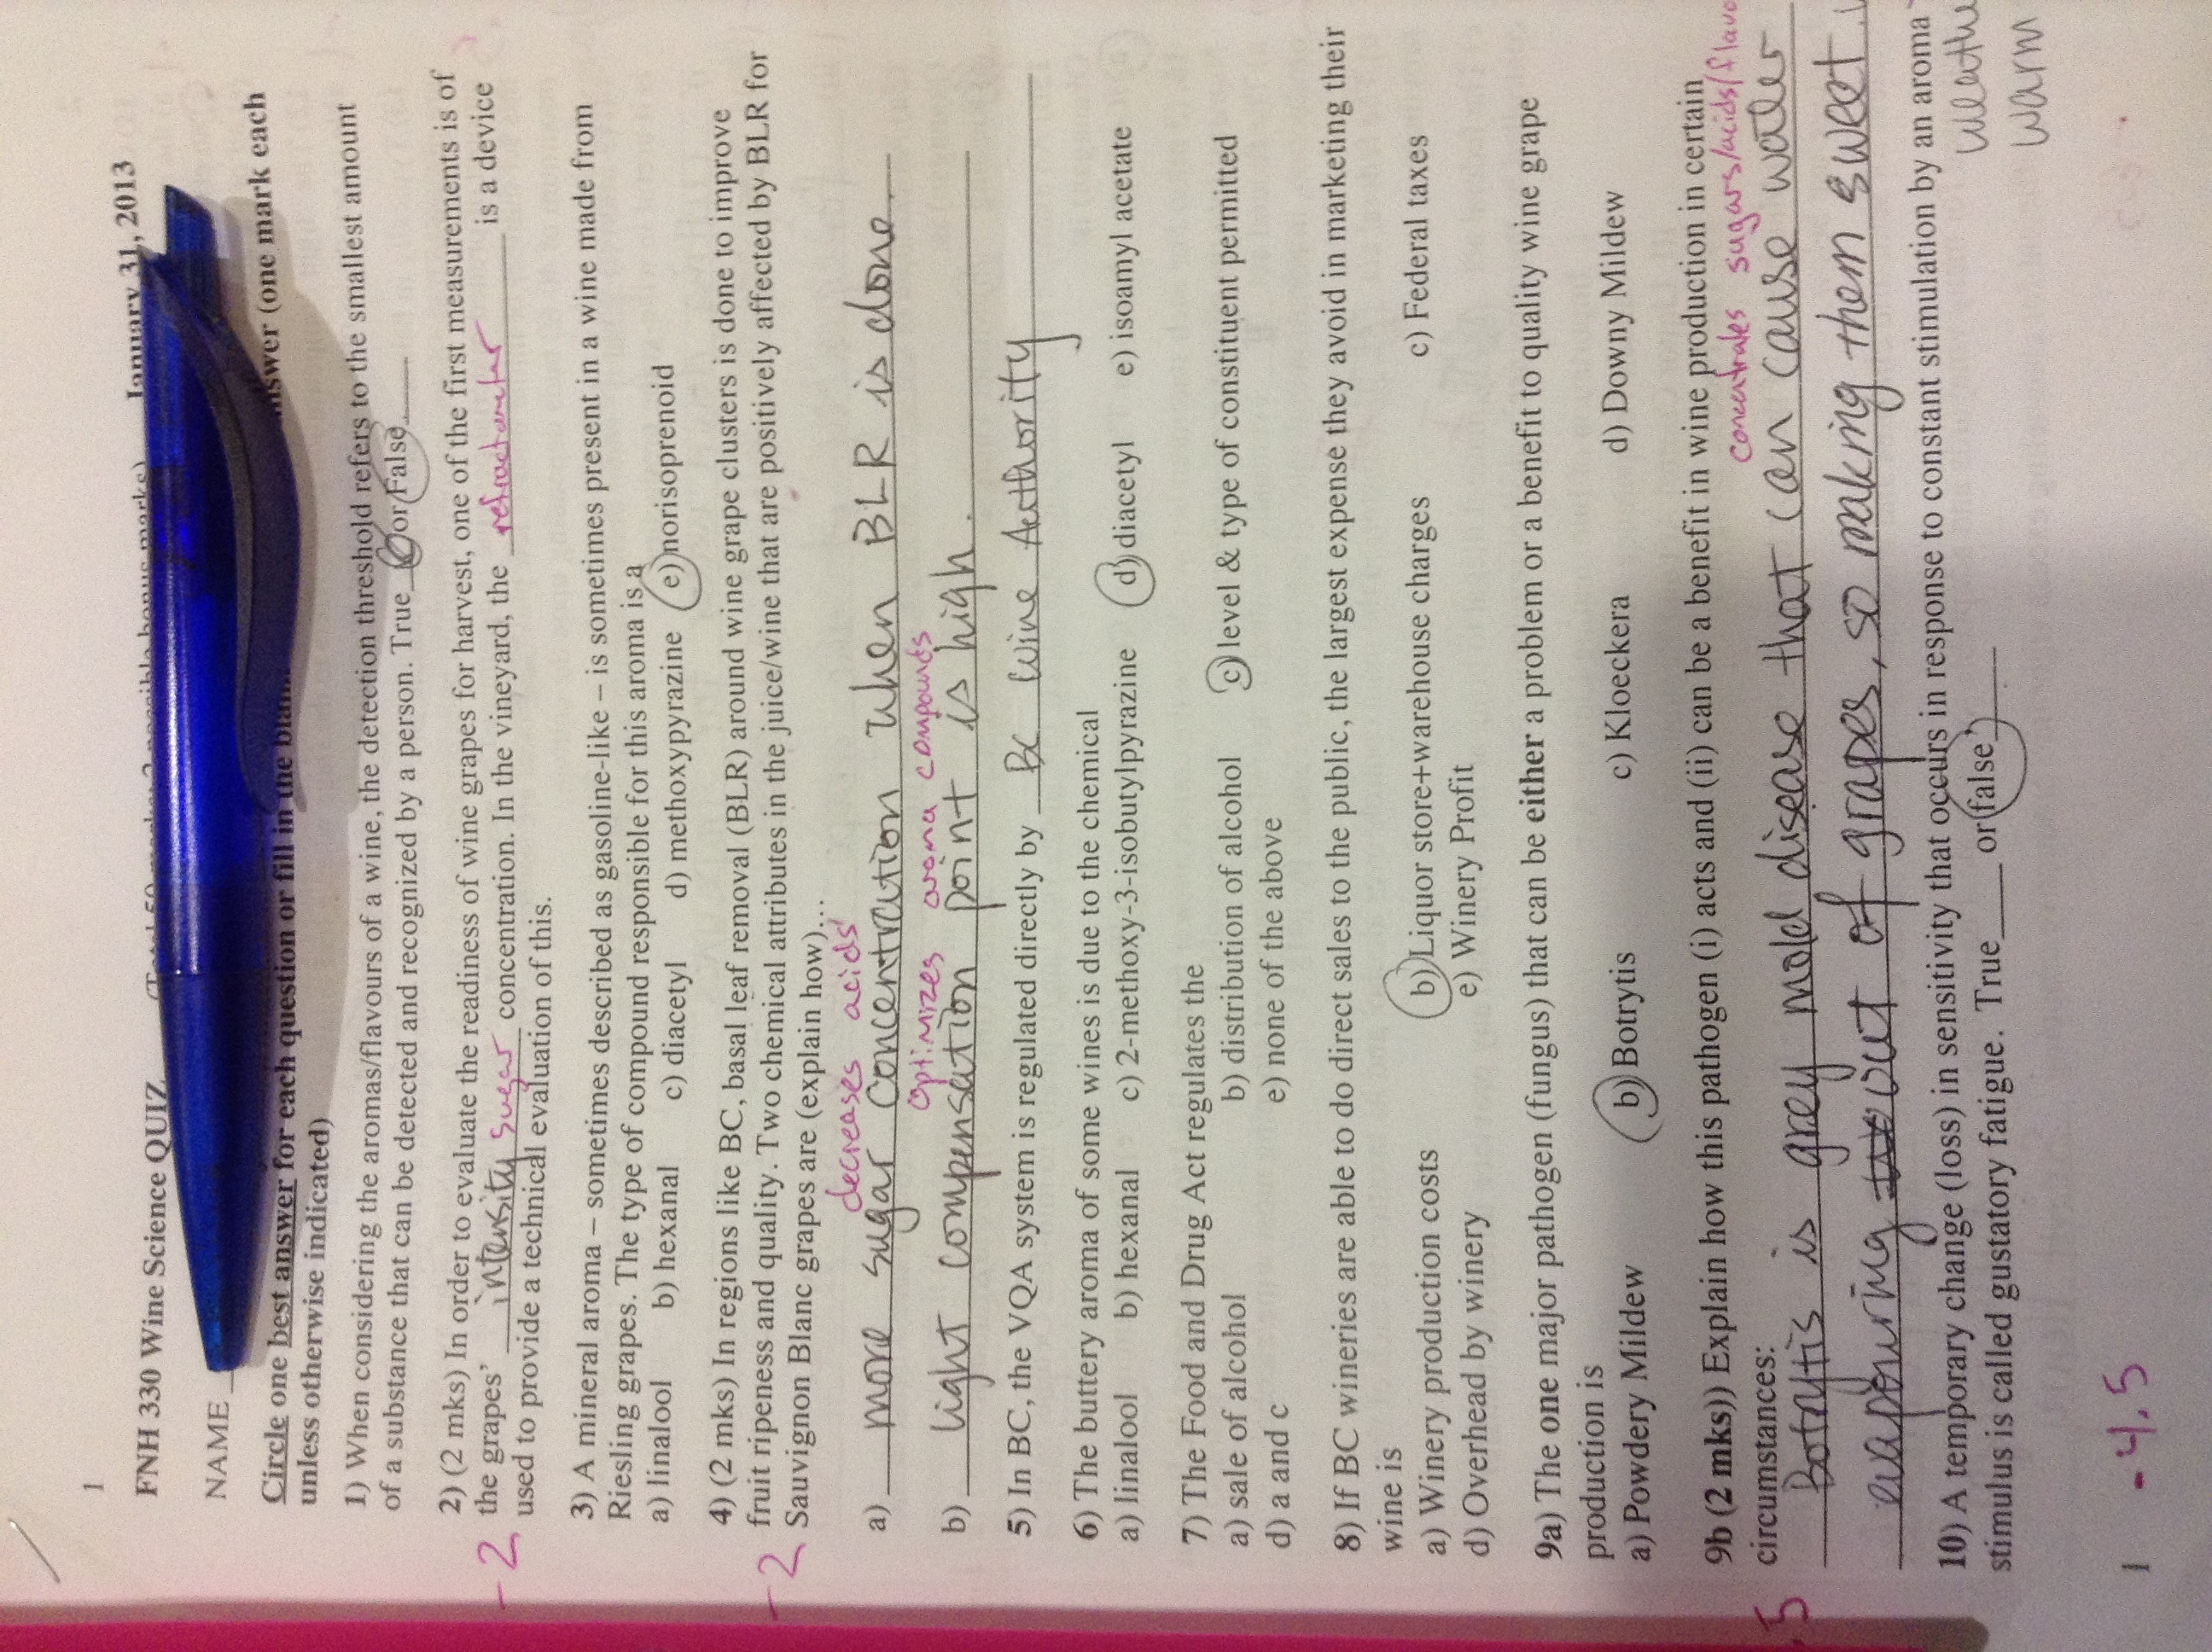 1
FNH 330 Wine Science QUIZ January 31, 2013
NAME
Circle one best answer for each question or fill in the answer (one mark each
unless otherwise indicated)
1) When considering the aromas/flavours of a wine, the detection threshold refers to the smallest amount
of a substance that can be detected and recognized by a person. True or False
2) (2 mks) In order to evaluate the readiness of wine grapes for harvest, one of the first measurements is of
the grapes' intensity sugar concentration. In the vineyard, the refractometer is a device
used to provide a technical evaluation of this.
-2
3) A mineral aroma – sometimes described as gasoline-like – is sometimes present in a wine made from
Riesling grapes. The type of compound responsible for this aroma is a
a) linalool b) hexanal c) diacetyl d) methoxypyrazine e) norisoprenoid
4) (2 mks) In regions like BC, basal leaf removal (BLR) around wine grape clusters is done to improve
fruit ripeness and quality. Two chemical attributes in the juice/wine that are positively affected by BLR for
Sauvignon Blanc grapes are (explain how)...
-2
decreases acids
a) more sugar concentration when BLR is done.
optimizes aroma compounds
b) light compensation point is high.
5) In BC, the VQA system is regulated directly by BC Wine Authority
6) The buttery aroma of some wines is due to the chemical
a) linalool b) hexanal c) 2-methoxy-3-isobutylpyrazine d) diacetyl e) isoamyl acetate
7) The Food and Drug Act regulates the
a) sale of alcohol b) distribution of alcohol c) level & type of constituent permitted
d) a and c e) none of the above
8) If BC wineries are able to do direct sales to the public, the largest expense they avoid in marketing their
wine is
a) Winery production costs b) Liquor store+warehouse charges c) Federal taxes
d) Overhead by winery e) Winery Profit
9a) The one major pathogen (fungus) that can be either a problem or a benefit to quality wine grape
production is
a) Powdery Mildew b) Botrytis c) Kloeckera d) Downy Mildew
9b (2 mks)) Explain how this pathogen (i) acts and (ii) can be a benefit in wine production in certain
circumstances:
concentrates sugars/acids/flavo
.5
Botrytis is grey mold disease that can cause water
evapouring out of grapes, so making them sweet
10) A temporary change (loss) in sensitivity that occurs in response to constant stimulation by an aroma
stimulus is called gustatory fatigue. True or false
warm
1
-4.5